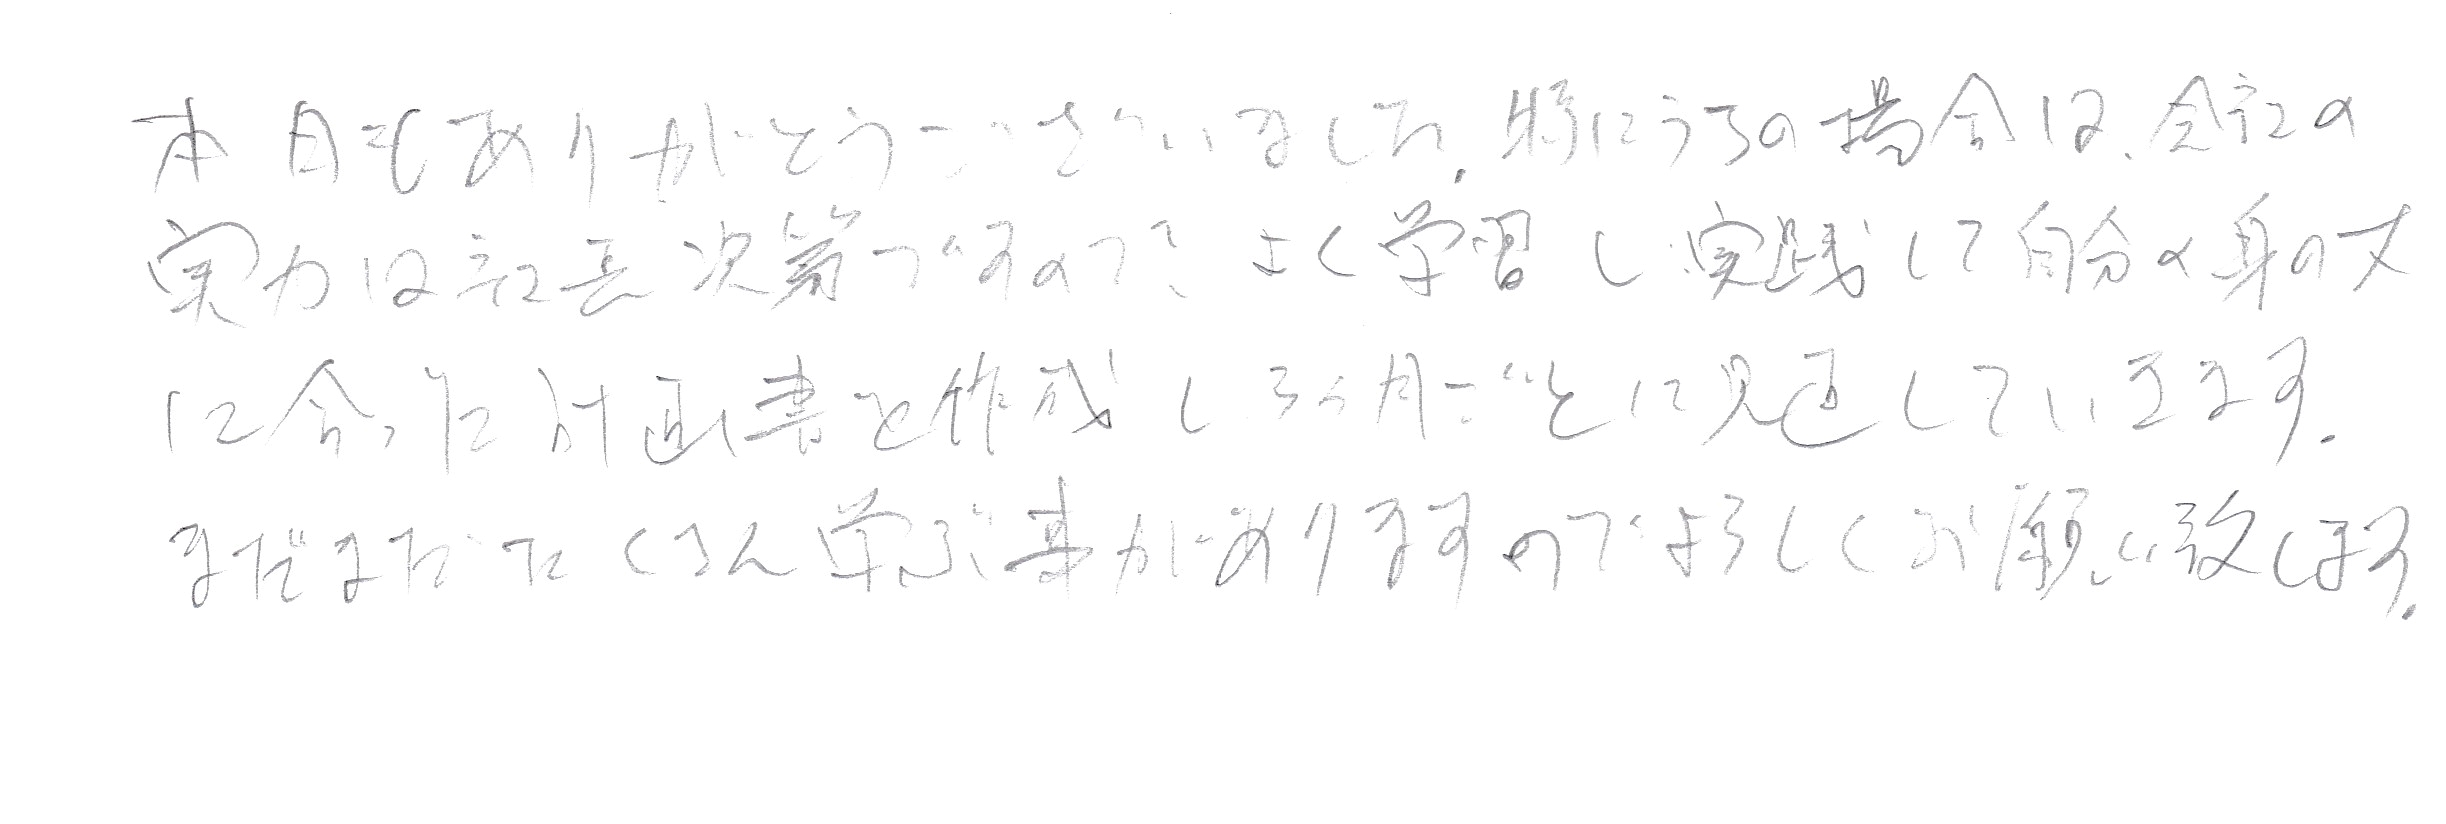 本日もありがとうございました。特にうちの場合は、会社の
実力は社長次第ですので、よく学習し実践して自分の身の丈
に合った計画書を作成し3ヶ月ごとに見直しています。
まだまだたくさん学ぶ事がありますのでよろしくお願い致します。